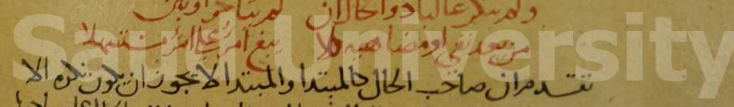 ولم ينكر غالبا ذو الحال ان لم يتاخر او يبن
من بعد نفي او مضاهيه كلا يبغ امرؤ على امرئ مستسهلا
تقدم ان صاحب الحال كالمبتدا والمبتدا لا يجوز ان يكون نكره الا
Saud University